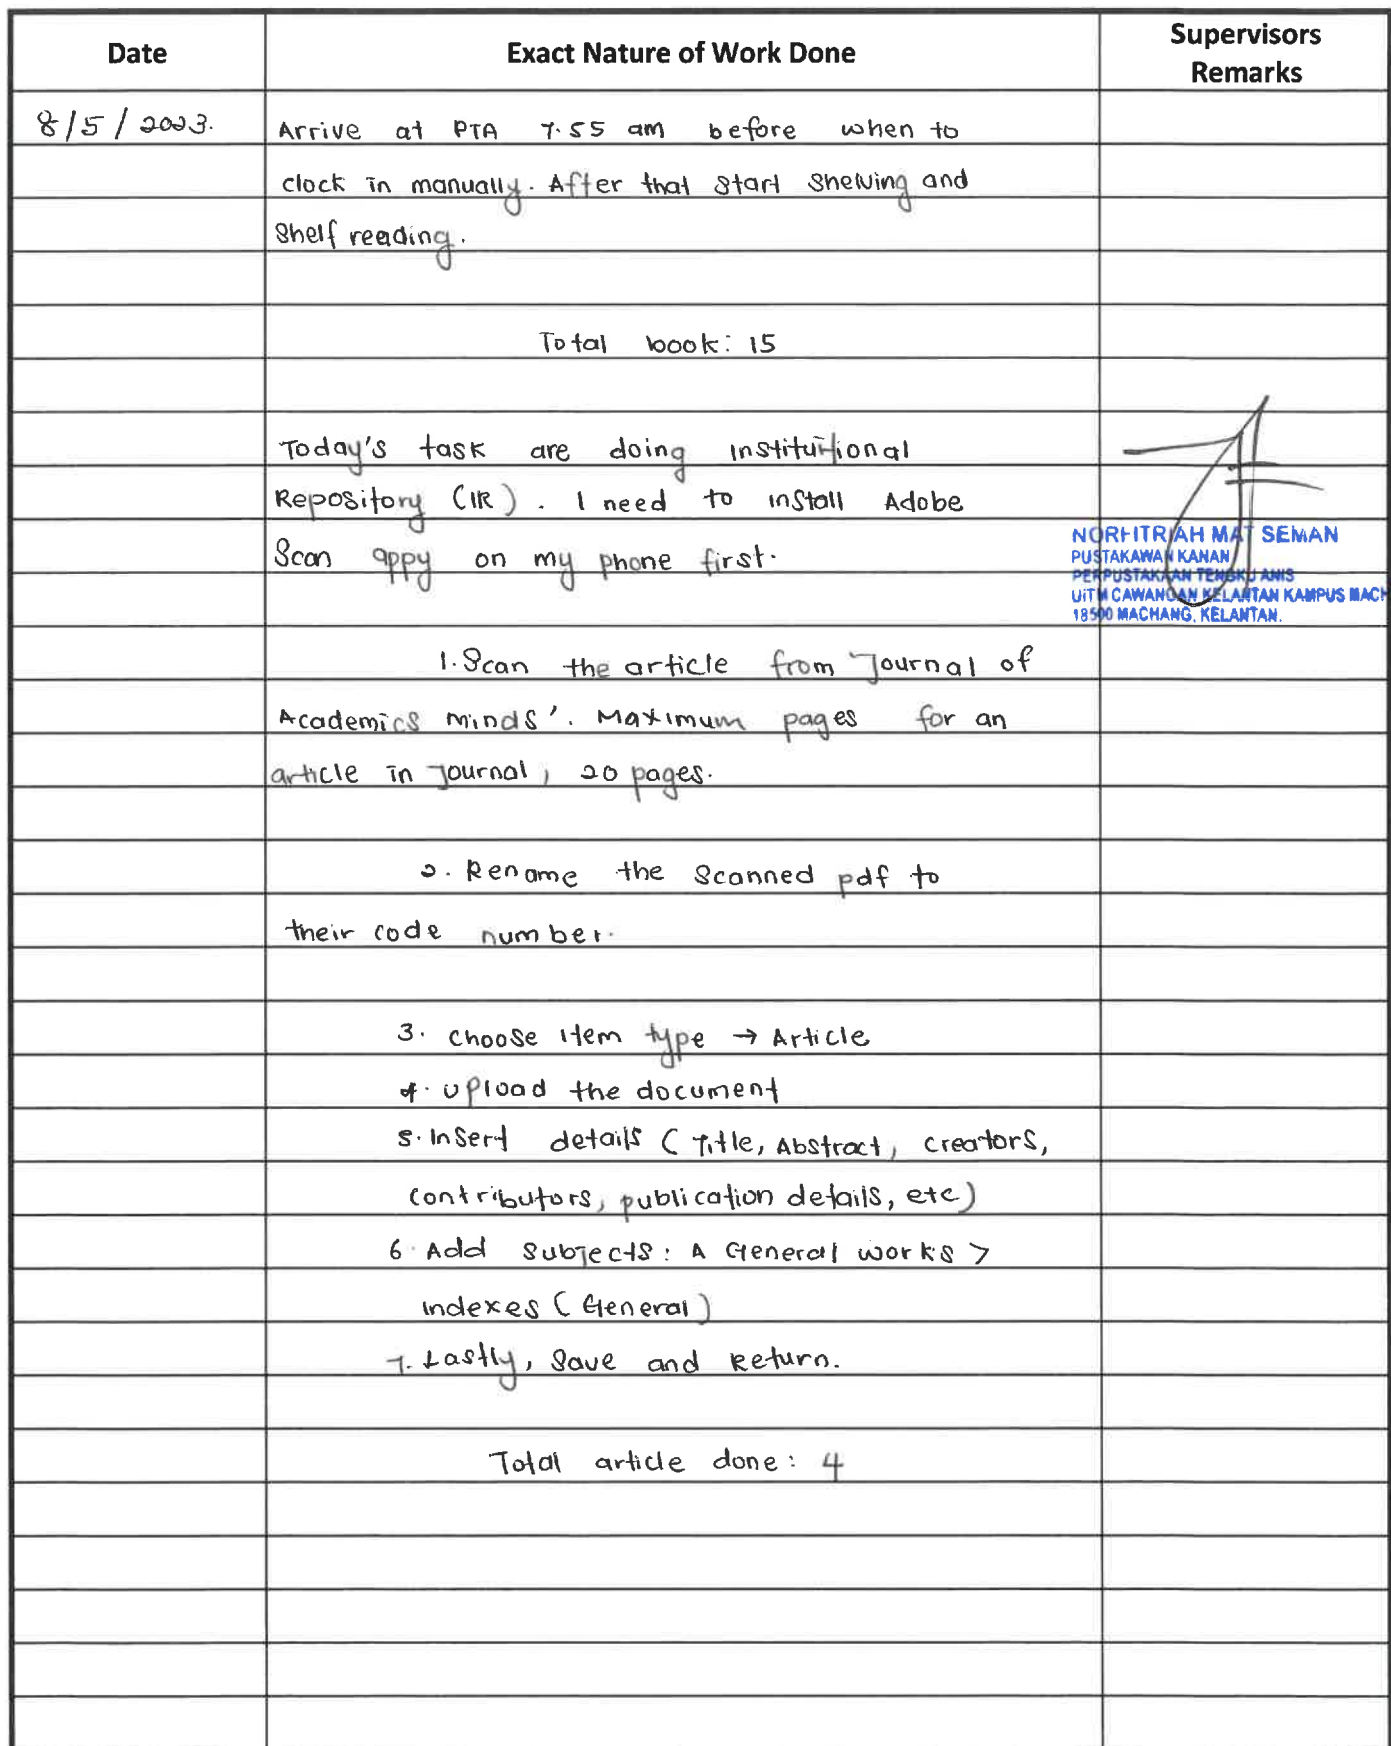 Date Exact Nature of Work Done Supervisors Remarks
8/5/2023. Arrive at PTA 7.55 am before when to
clock in manually. After that start shelving and
Shelf reading.
Total book: 15
Today's task are doing Institutional
Repository (IR). I need to install Adobe
Scan appy on my phone first.
NORFITRIAH MAT SEMAN
PUSTAKAWAN KANAN
PERPUSTAKAAN TENGKU ANIS
UiTM CAWANGAN KELANTAN KAMPUS MACH
18500 MACHANG, KELANTAN.
1. Scan the article from 'Journal of
Academics minds'. Maximum pages for an
article in journal, 20 pages.
2. Rename the scanned pdf to
their code number.
3. Choose item type → Article
4. Upload the document
5. Insert details (Title, Abstract, creators,
contributors, publication details, etc)
6. Add Subjects: A General works >
indexes (General)
7. Lastly, Save and Return.
Total article done: 4